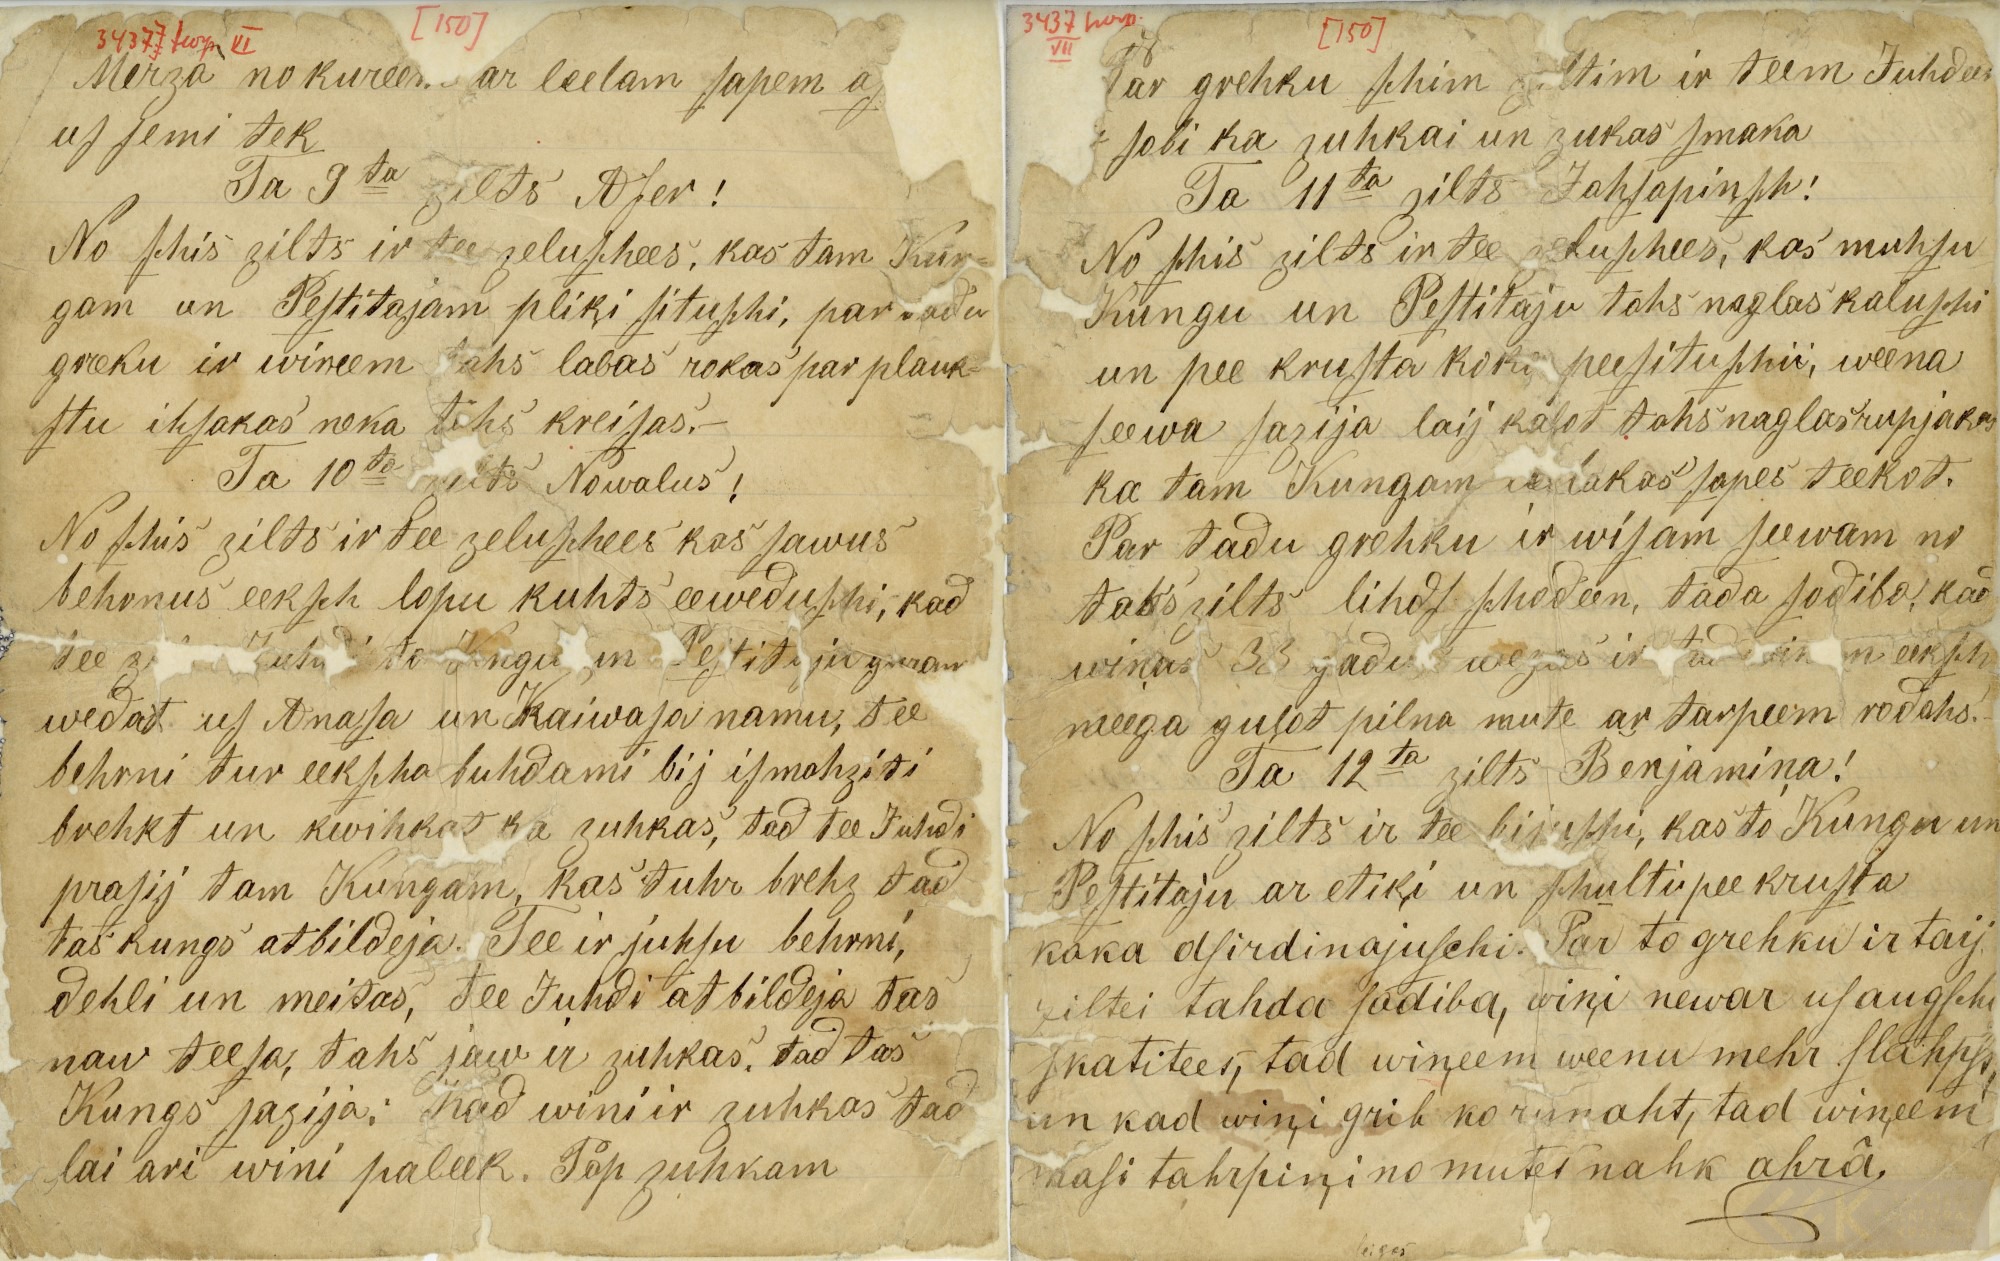 34377 VI
[150]
Merza no kureem ar leelam sapem
us semi tek
Ta 9ta zilts Aser!
No schis zilts ir tee zeluschees, kas tam Kun-
gam un Pestitajam pliķi situschi, par
greku ir wineem tahs labas rokas par plauk-
stu ihsakas neka tahs kreisas.–
Ta 10ta zilts Nowalus!
No schis zilts ir tee zeluschees kas sawus
behrnus eeksch lopu kuhts eeweduschi, kad
tee Juhdi to un Pestitaju
wedat us Anasa un Kaiwasa namu, tee
behrni tur eekscha buhdami bij ismahziti
brehkt un kwihkat ka zuhkas, tad tee Juhdi
prasij tam Kungam, kas tuhr brehz tad
tas kungs atbildeja. Tee ir juhsu behrni,
dehli un meitas, tee Juhdi atbildeja tas
naw teesa, tahs jaw ir zuhkas, tad tas
Kungs sazija: Kad wini ir zuhkas tad
lai ari wini paleek. Pop zuhkam
3437 VII
[150]
Par grehku schim ziltim ir teem Juhdeem
sobi ka zuhkai un zukas smaka
Ta 11ta zilts Jahsapinsch!
No schis zilts ir tee zeluschees, kas muhsu
Kungu un Pestitaju tahs naglas kaluschi
un pee krusta koka peesituschii, weena
seewa sazija laij kalot tahs naglas rupjakas
ka tam Kungam sapes teekot.
Par tadu grehku ir wisam seewam no
tahs zilts lihds schodeen, tada sodiba, kad
wiņas 33 gadus wezas ir eeksch
meega guļot pilna mute ar tarpeem rodahs.–
Ta 12ta zilts Benjamiņa!
No schis zilts ir tee bijuschi, kas to Kungu un
Pestitaju ar etiķi un schulti pee krusta
koka dsirdinajuschi. Par to grehku ir taij
ziltei tahda sodiba, wiņi newar us augschu
skatitees, tad wiņeem weenu mehr slahpst,
un kad wiņi grib ko runaht, tad wiņeem
masi tahrpiņi no mutes nahk ahrâ.